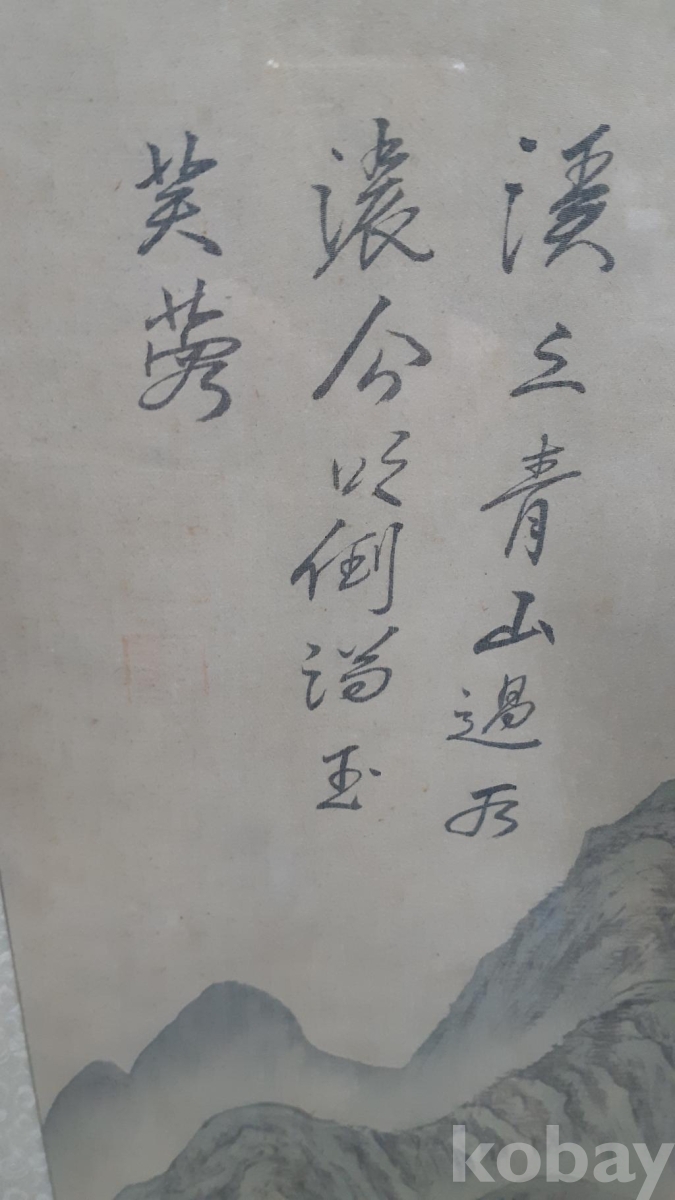 溪上青山過雨
濃分明倒玉
芙蓉
kobay